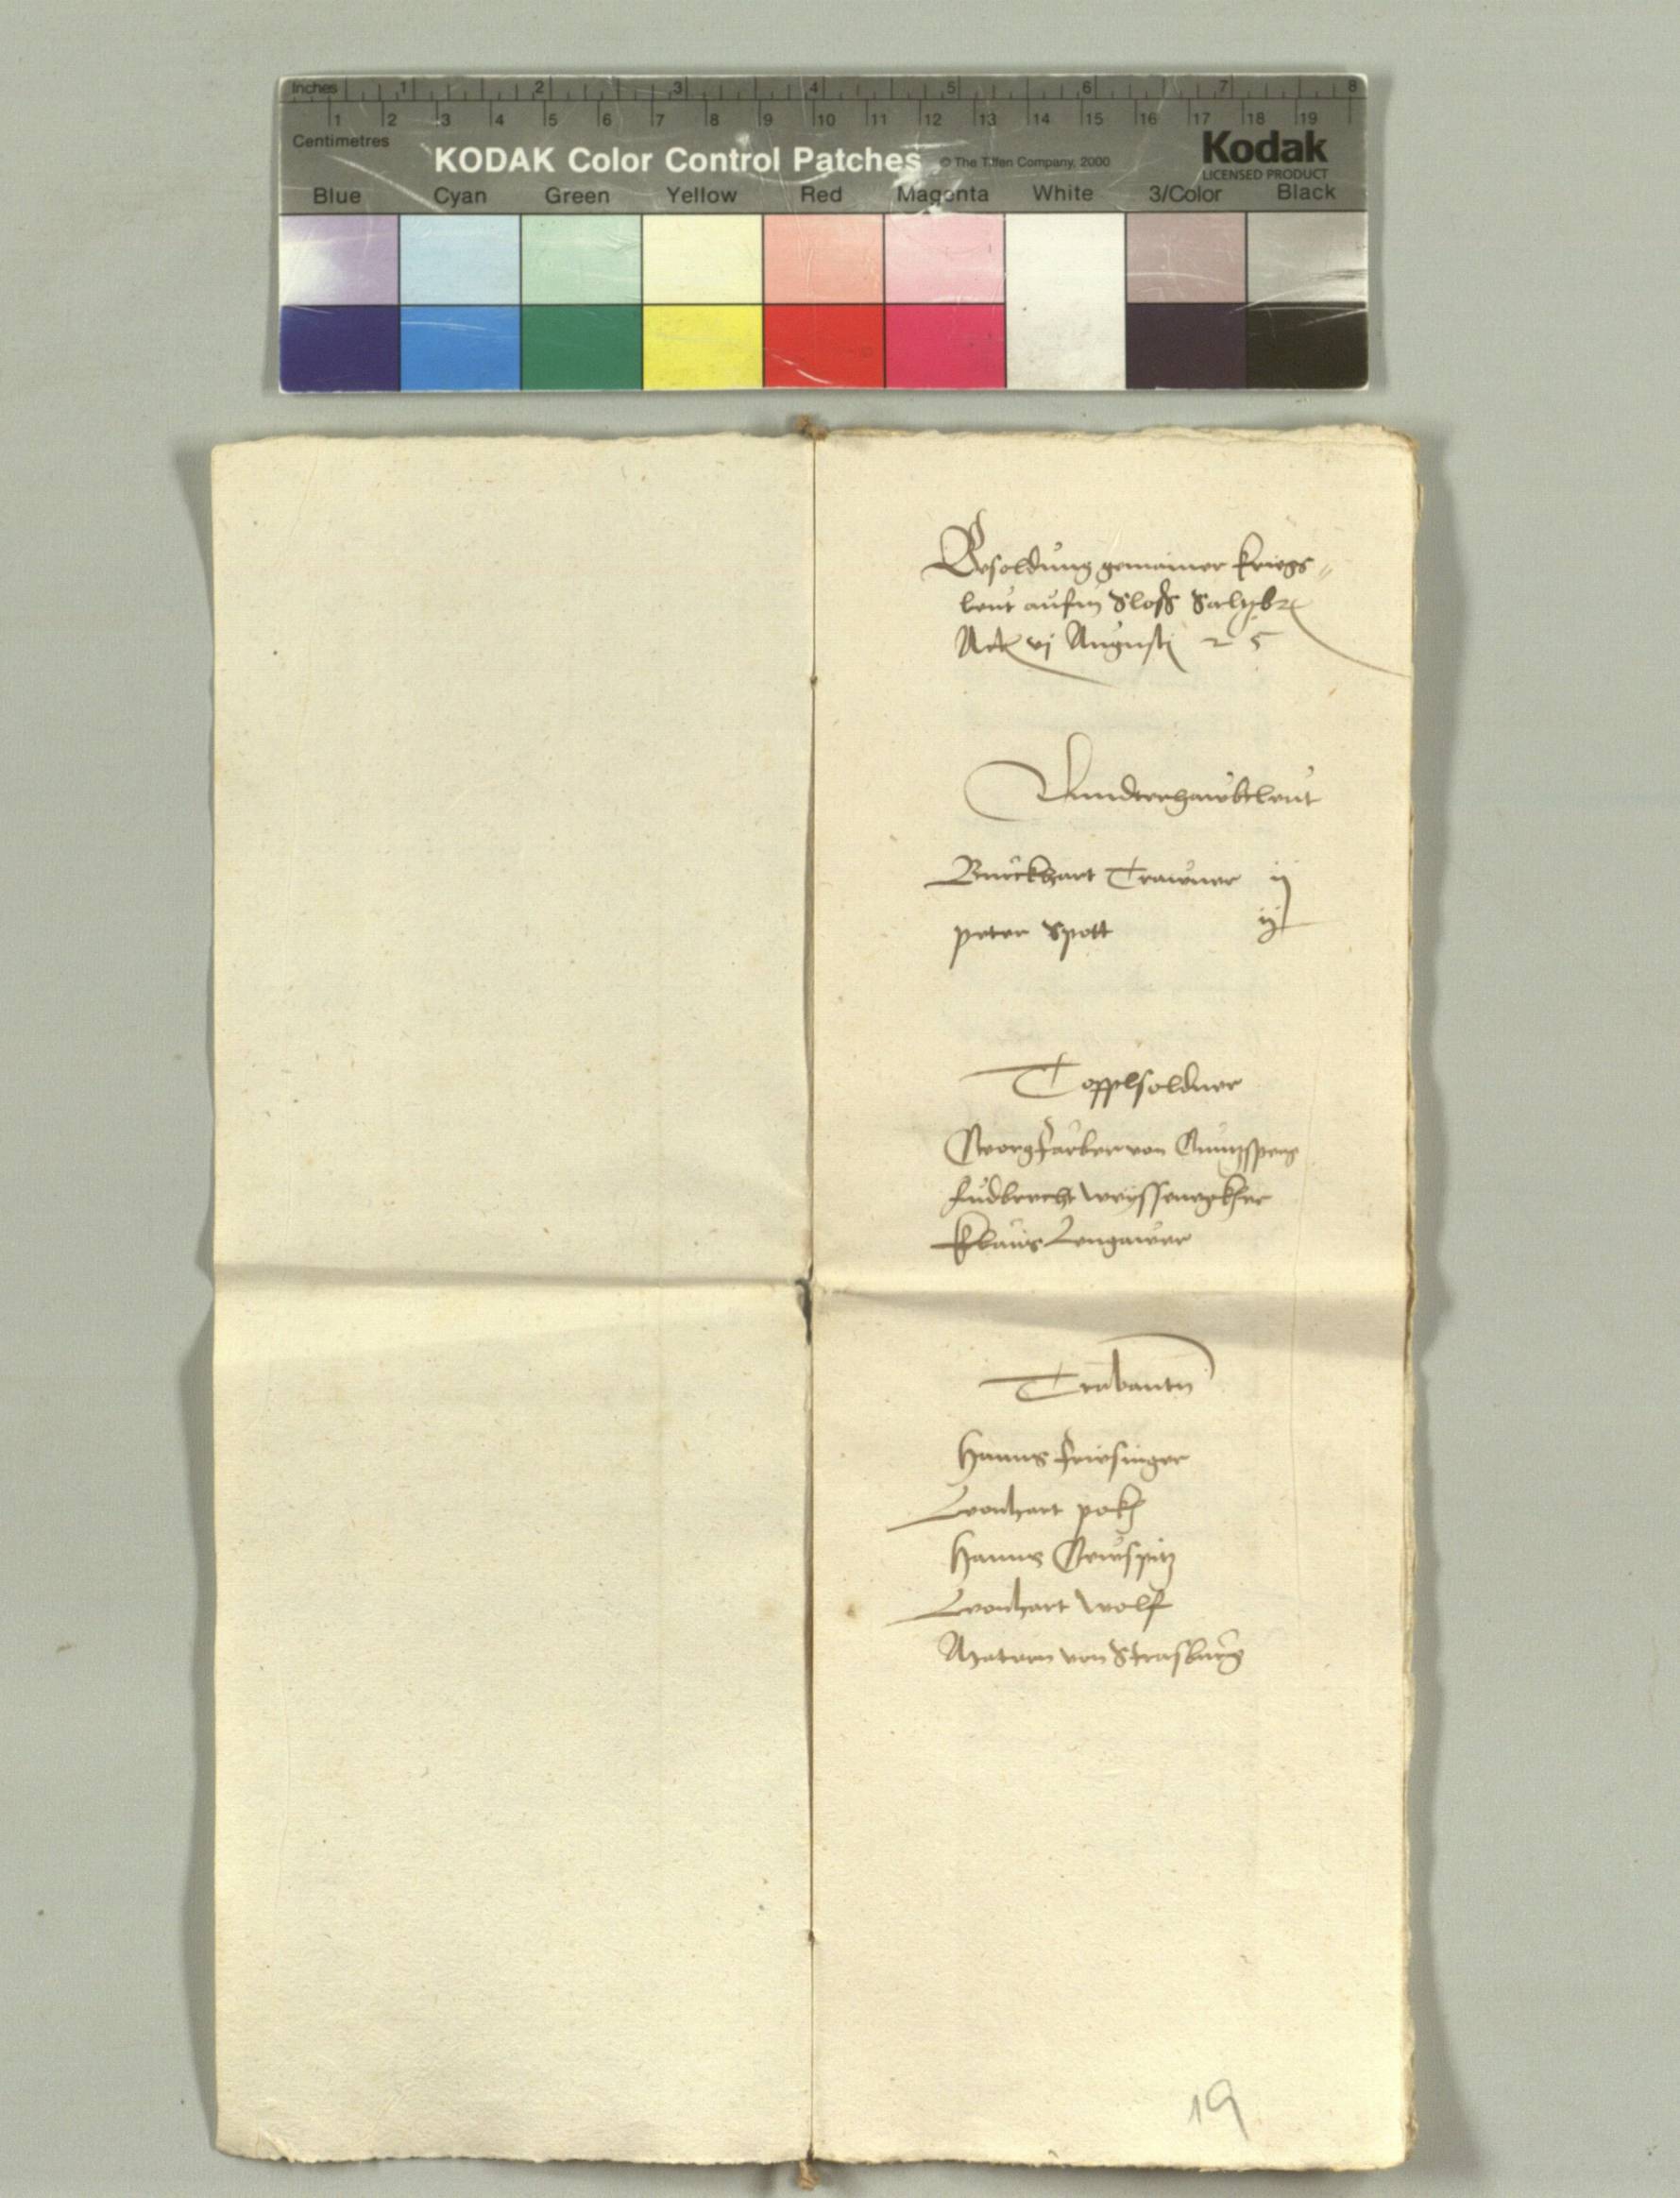 Inches 1 2 3 4 5 6 7 8
1 2 3 4 5 6 7 8 9 10 11 12 13 14 15 16 17 18 19
Centimetres
KODAK Color Control Patches © The Tiffen Company, 2000 Kodak
LICENSED PRODUCT
Blue Cyan Green Yellow Red Magenta White 3/Color Black
Besoldung gemainer kriegs
leut aufm Sloss Salzb
Act vj Augusti 25
Vnndterhawbtleut
Burckhart Trawner ij
peter Spott ij
Topplsoldner
Georg Farber von
weyssenegkher
Klaus Lengawer
Trabantn
Hanns freisinger
Leonhart pokh
Hanns Newspitz
Leonhart Wolf
Matern von Strasburg
19